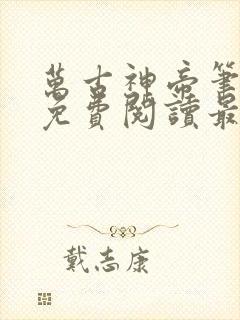 萬古神帝筆
免費閱讀最
戴志康